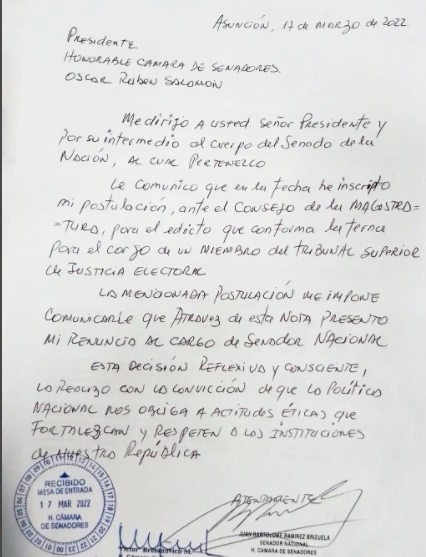 Asunción, 17 de MARZO de 2022
Presidente
HONORABLE CAMARA DE SENADORES.
OSCAR Ruben SALOMÓN
Me dirijo A usted, Señor Presidente y
por su intermedio al cuerpo del Senado de la
Nación, AL CUAL PERTENEZCO
Le Comunico que en la fecha he inscripto
mi postulación, ante el CONSEJO de la MAGISTRA=
=TURA, para el edicto que conforma la terna
para el cargo de un MIEMBRO del TRIBUNAL SUPERIOR
de JUSTICIA ELECTORAL
LA MENCIONADA POSTULACIÓN ME IMPONE
COMUNICARLE que ATRAVEZ de esta NOTA PRESENTO
MI RENUNCIA AL CARGO de SENADOR NACIONAL
ESTA DECISIÓN REFLEXIVA y CONSCIENTE,
LA REALIZO CON LA CONVICCIÓN de que LA Política
NACIONAL NOS OBLIGA A ACTITUDES ÉTICAS que
FORTALEZCAN y RESPETEN A LAS INSTITUCIONES
de NUESTRA REPÚBLICA
ATENTAMENTE
RECIBIDO
MESA DE ENTRADA
17 MAR 2022
H. CÁMARA
DE SENADORES
JUAN BARTOLOME RAMIREZ BRIZUELA
SENADOR NACIONAL
H. CAMARA DE SENADORES
Victor Bresanovich M.